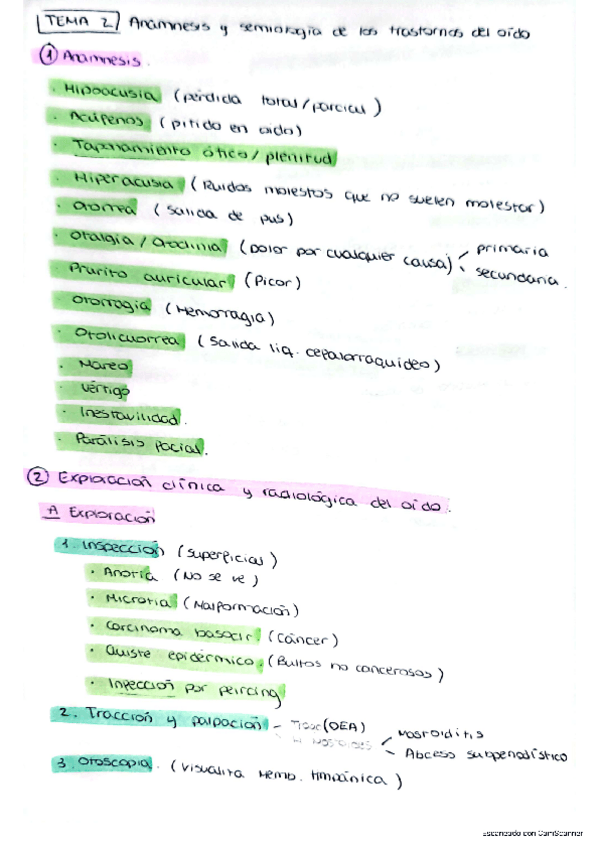 TEMA 2 Anamnesis y semiología de los trastornos del oído
① Anamnesis.
· Hipoacusia (pérdida total/parcial)
· Acúfenos (pitido en oido)
· Taponamiento ótico/plenitud
· Hiperacusia (Ruidos molestos que no suelen molestar)
· Otorrea (Salida de pus)
· Otalgia / Otodinia (Dolor por cualquier causa) primaria
secundaria.
· Prurito auricular (Picor)
· Otorragia (Hemorragia)
· Otolicuorrea (Salida liq. cefalorraquídeo)
· Mareo
· Vértigo
· Inestabilidad.
· Parálisis facial.
② Exploración clínica y radiológica del oído.
A Exploración
1. Inspección (superficial)
· Anotia (No se ve)
· Microtia (Malformación)
· Carcinoma basocel. (Cáncer)
· Quiste epidérmico. (Bultos no cancerosos)
· Infección por peircing
2. Tracción y palpación - (OEA) Mastoiditis
- Absceso
3. Otoscopia. (Visualiza memb. timpánica)
Escaneado con CamScanner